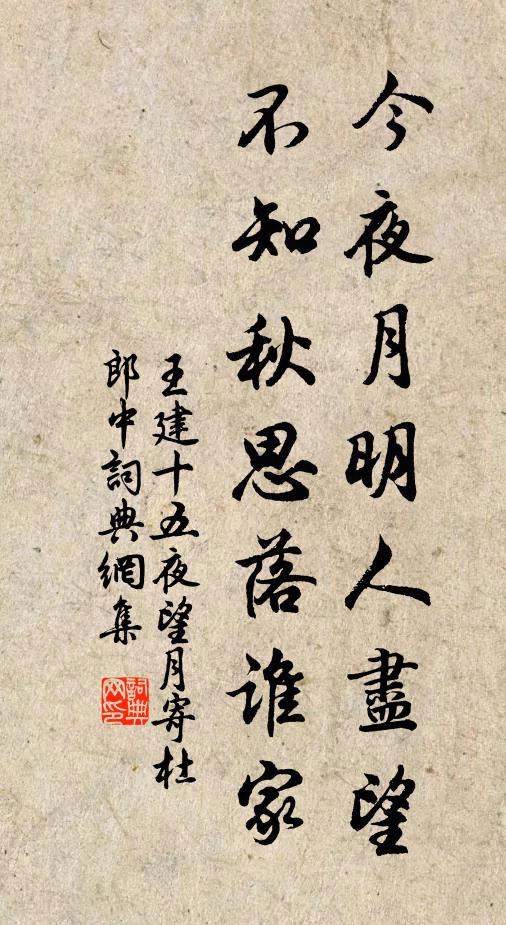 今夜月明人盡望
不知秋思落誰家
王建十五夜望月寄杜
郎中詞典網集
詞典
网印